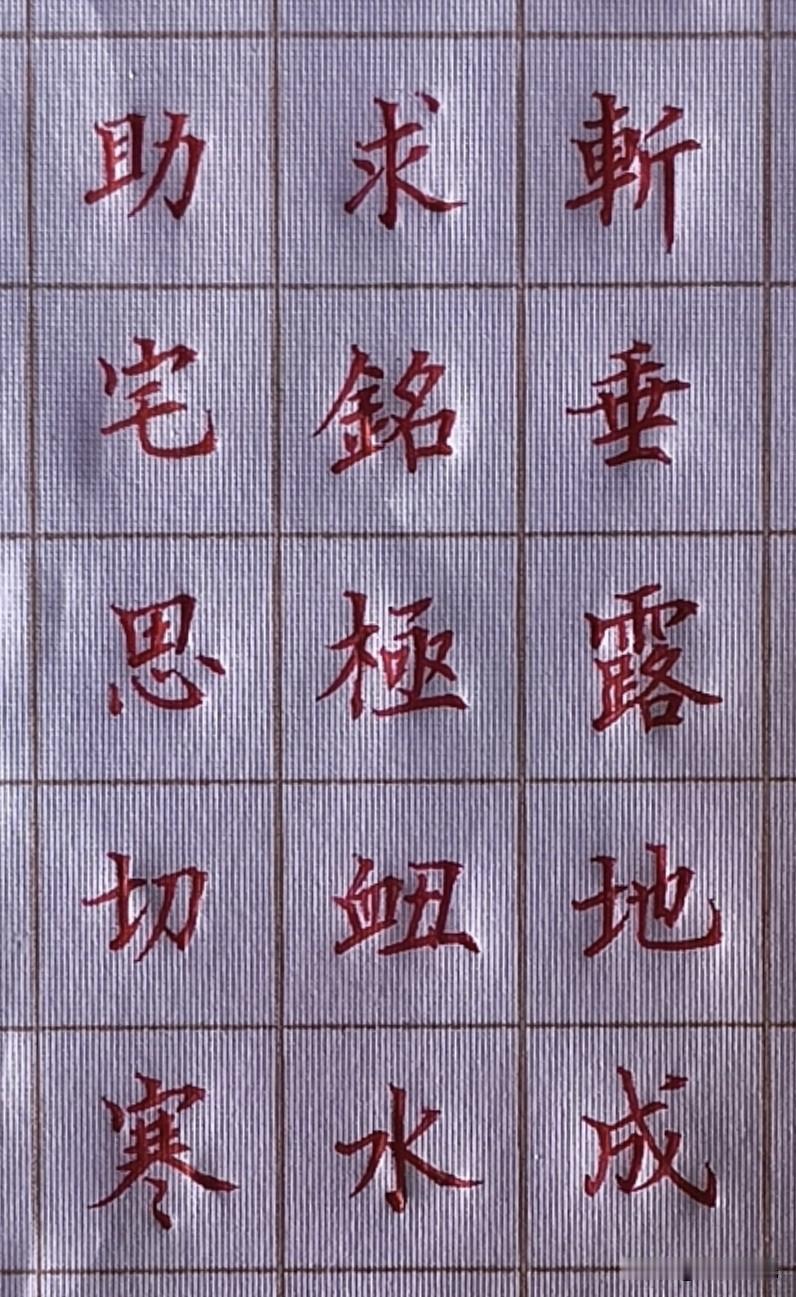 斬垂露地成
求銘極衄水
助宅思切寒